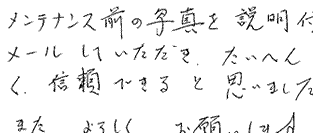 メンテナンス前の写真を説明付
メールしていただき、たいへん
く、信頼できると思いました
また よろしく お願いします